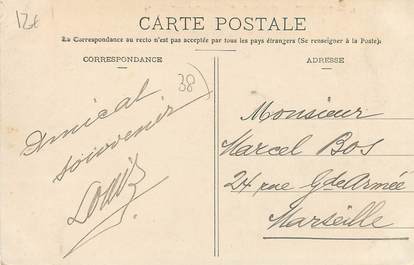 12€
CARTE POSTALE
La Correspondance au recto n'est pas acceptée par tous les pays étrangers (Se renseigner à la Poste).
CORRESPONDANCE
ADRESSE
38
Amical
souvenir
Louis
Monsieur
Marcel Bos
24 rue Gde Armée
Marseille